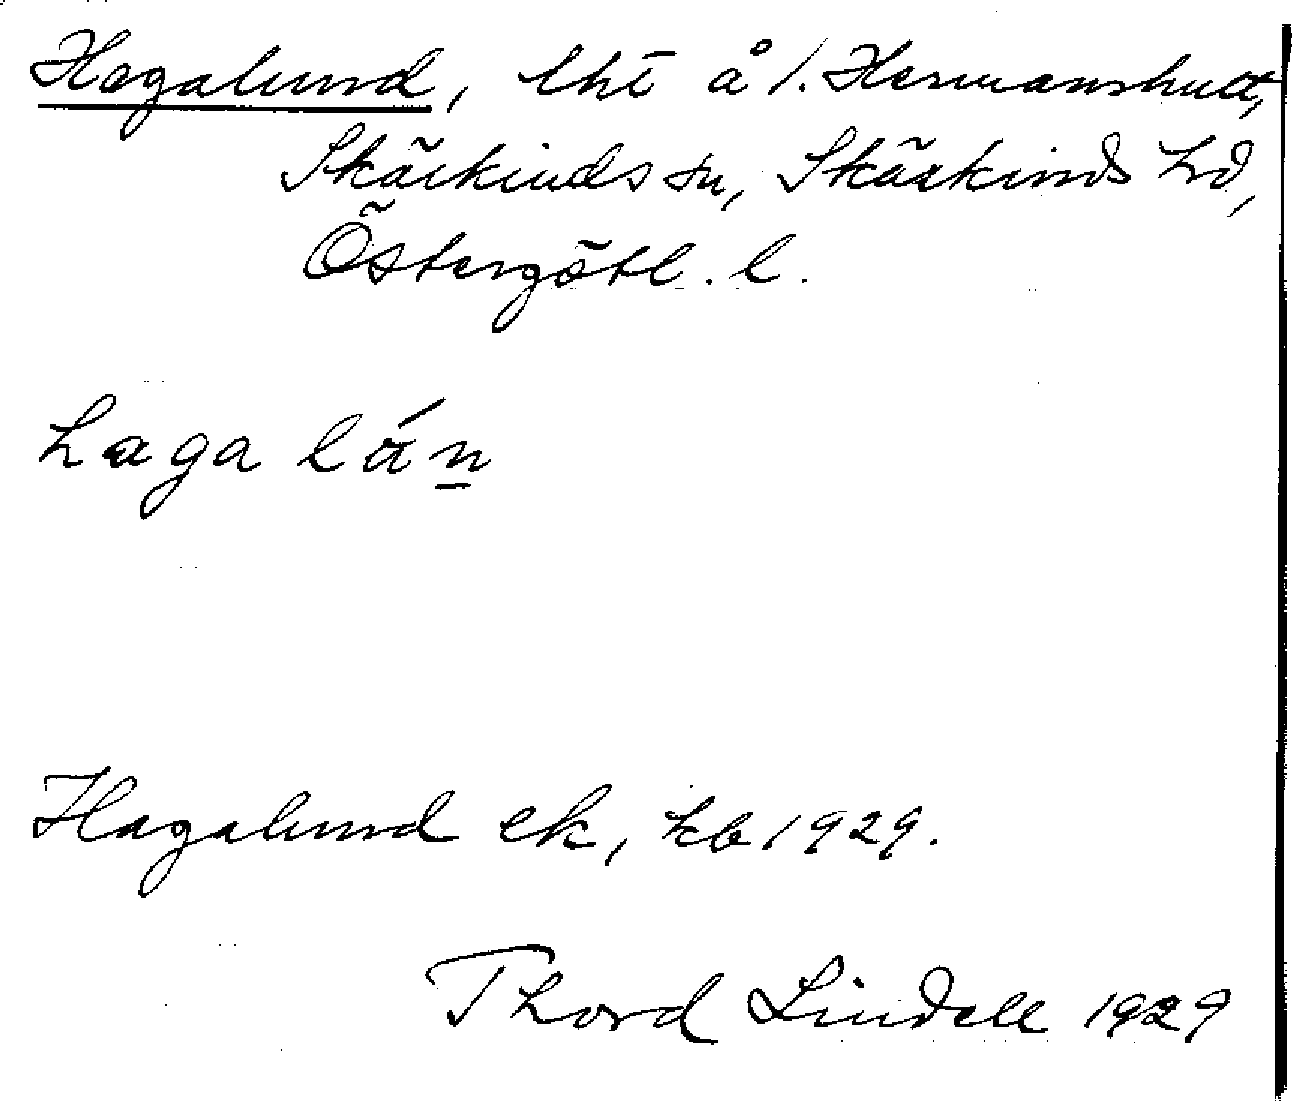 Hagalund, lht å 1. Hermanshult,
Skärkinds sn, Skärkinds hd,
Östergötl. l.
haga lán
Hagalund ek, kb 1929.
Thord Lindell 1929